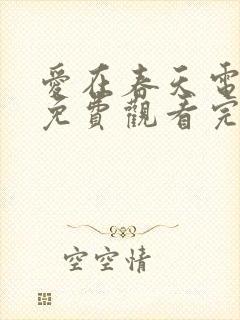 愛在春天電
免費觀看完
空空情